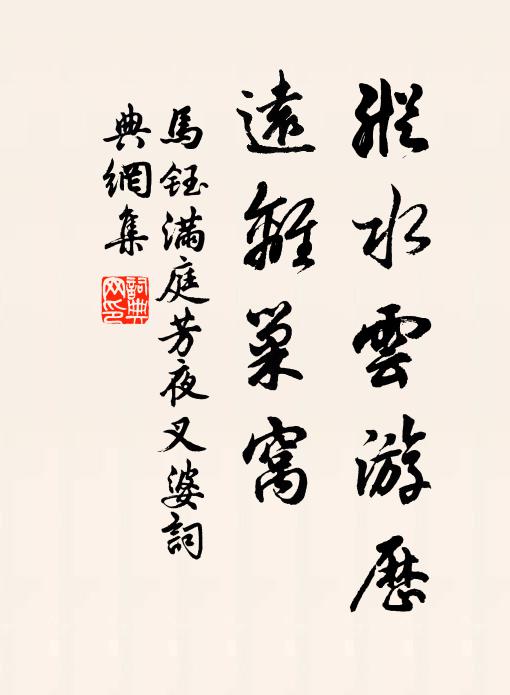 縱水雲游歷
遠離巢窩
馬鈺滿庭芳夜叉婆詞
典網集
詞典網印